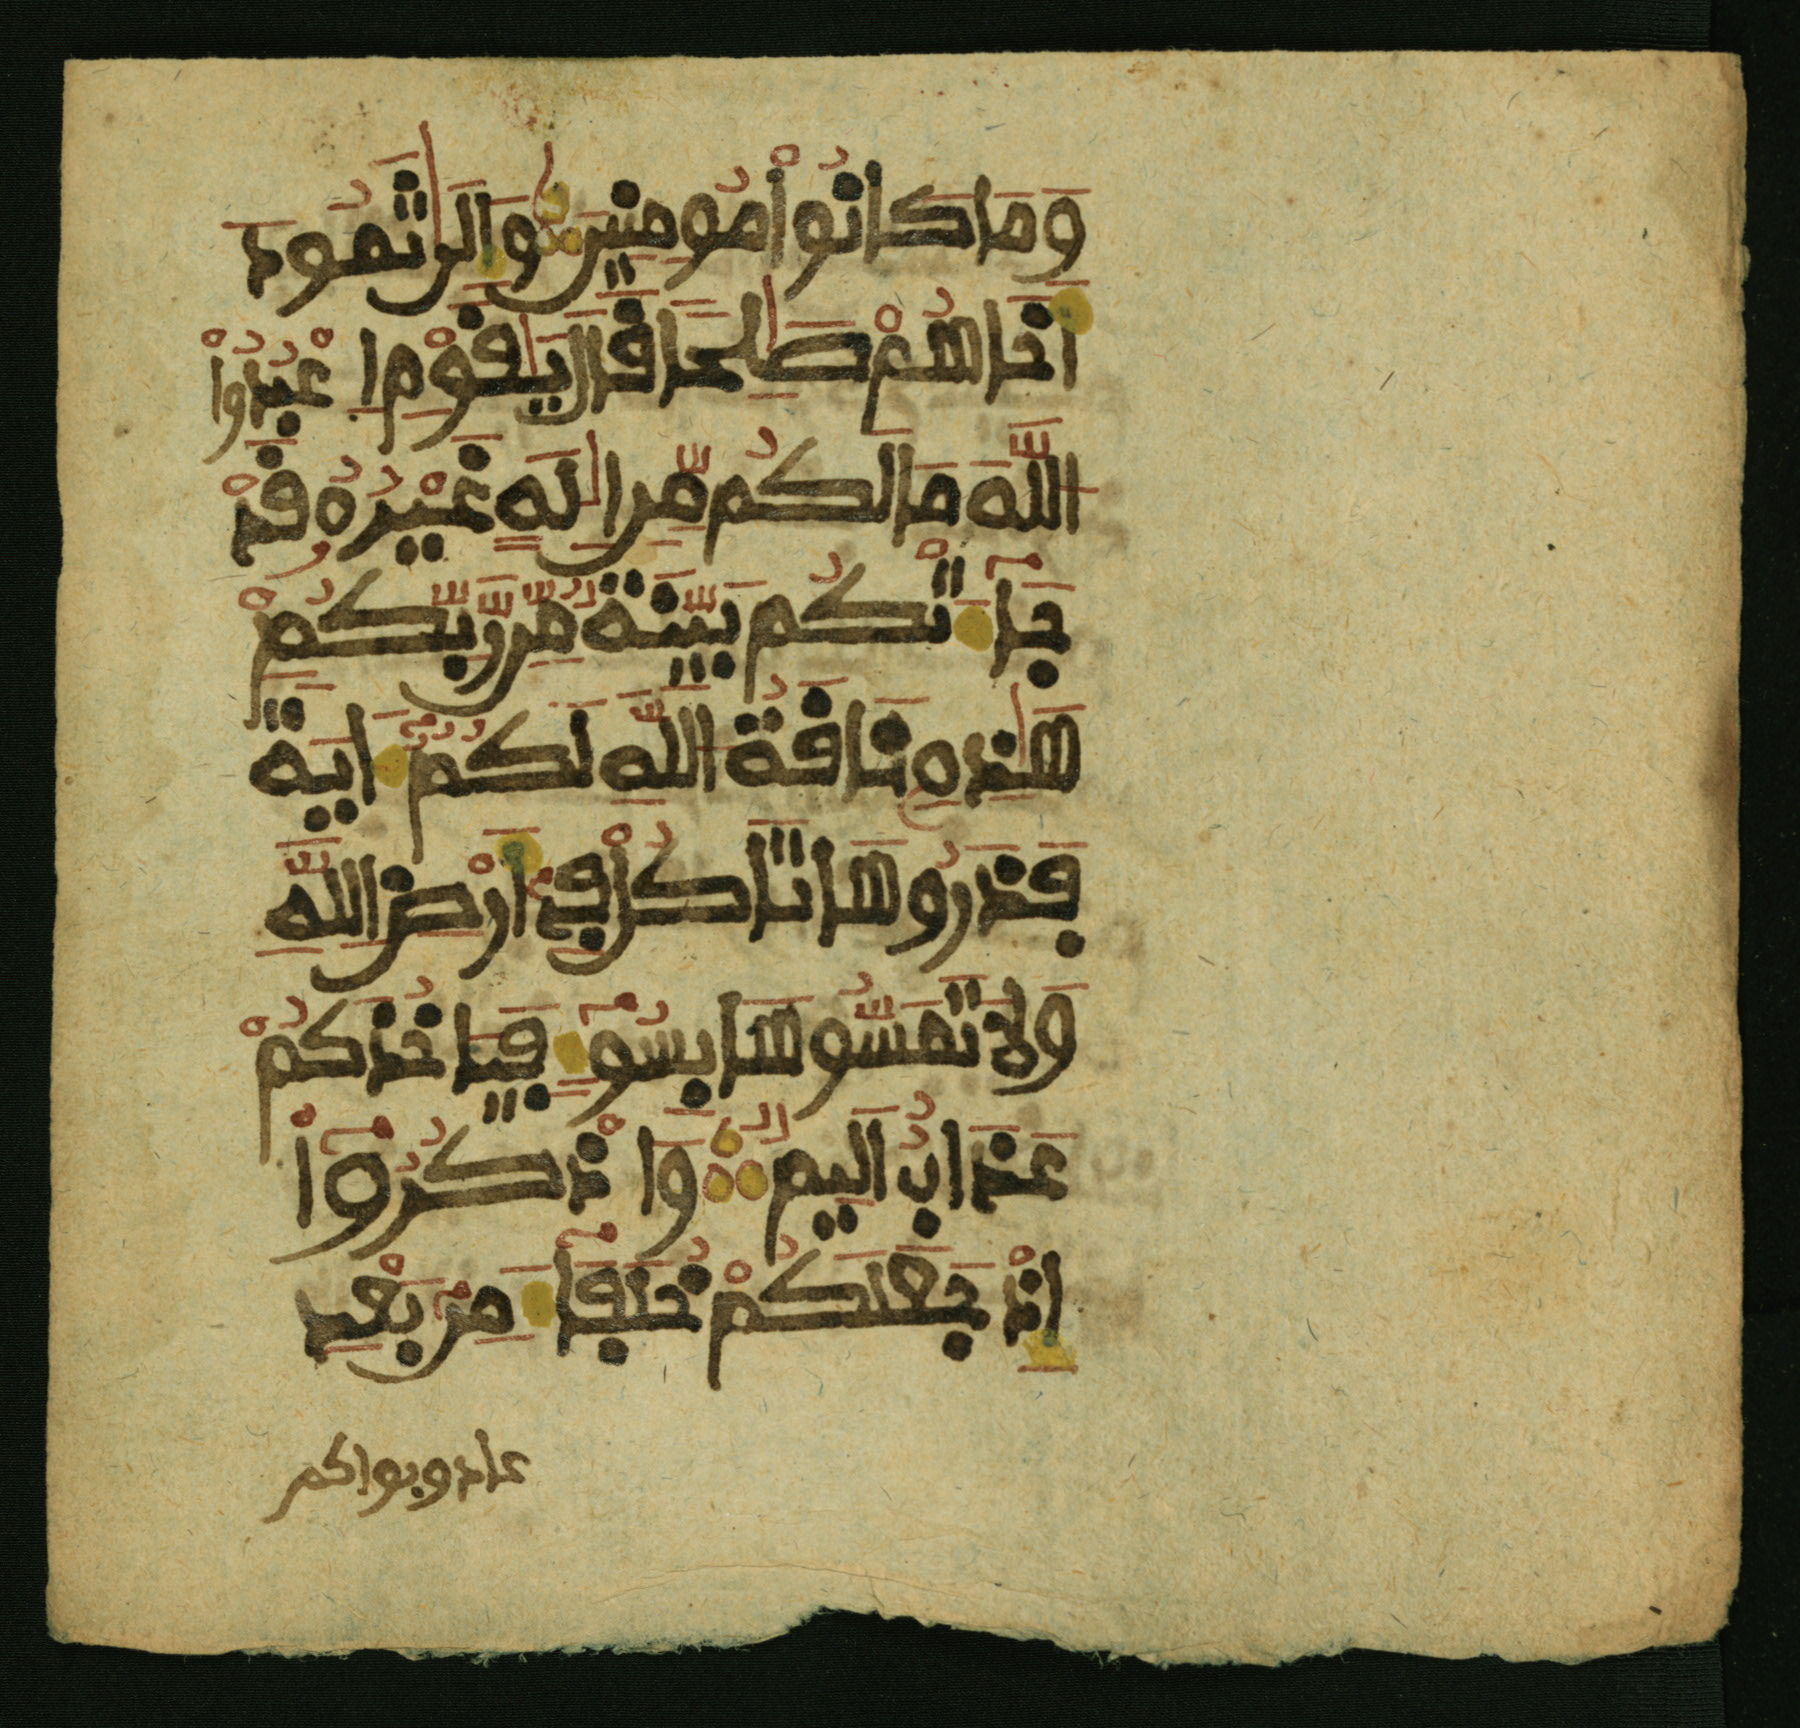 وَمَا كَانُواْ مُومِنِينَ وَإِلَىٰ ثَمُودَ
أَخَاهُمْ صَٰلِحًا قَالَ يَٰقَوْمِ اِ عْبُدُواْ
اللَّهَ مَا لَكُم مِّنِ اِلَٰهٍ غَيْرُهُ قَدْ
جَآءَتْكُم بَيِّنَةٌ مِّن رَّبِّكُمْ
هَٰذِهِ نَاقَةُ اللَّهِ لَكُمُ ءَايَةً
فَذَرُوهَا تَاكُلْ فِي أَرْضِ اللَّهِ
وَلَا تَمَسُّوهَا بِسُوٓءٍ فَيَاخُذَكُمْ
عَذَابٌ اَلِيمٌ وَا ذْكُرُوٓاْ
إِذْ جَعَلَكُمْ خُلَفَآءَ مِن بَعْدِ
عاد وبواكم